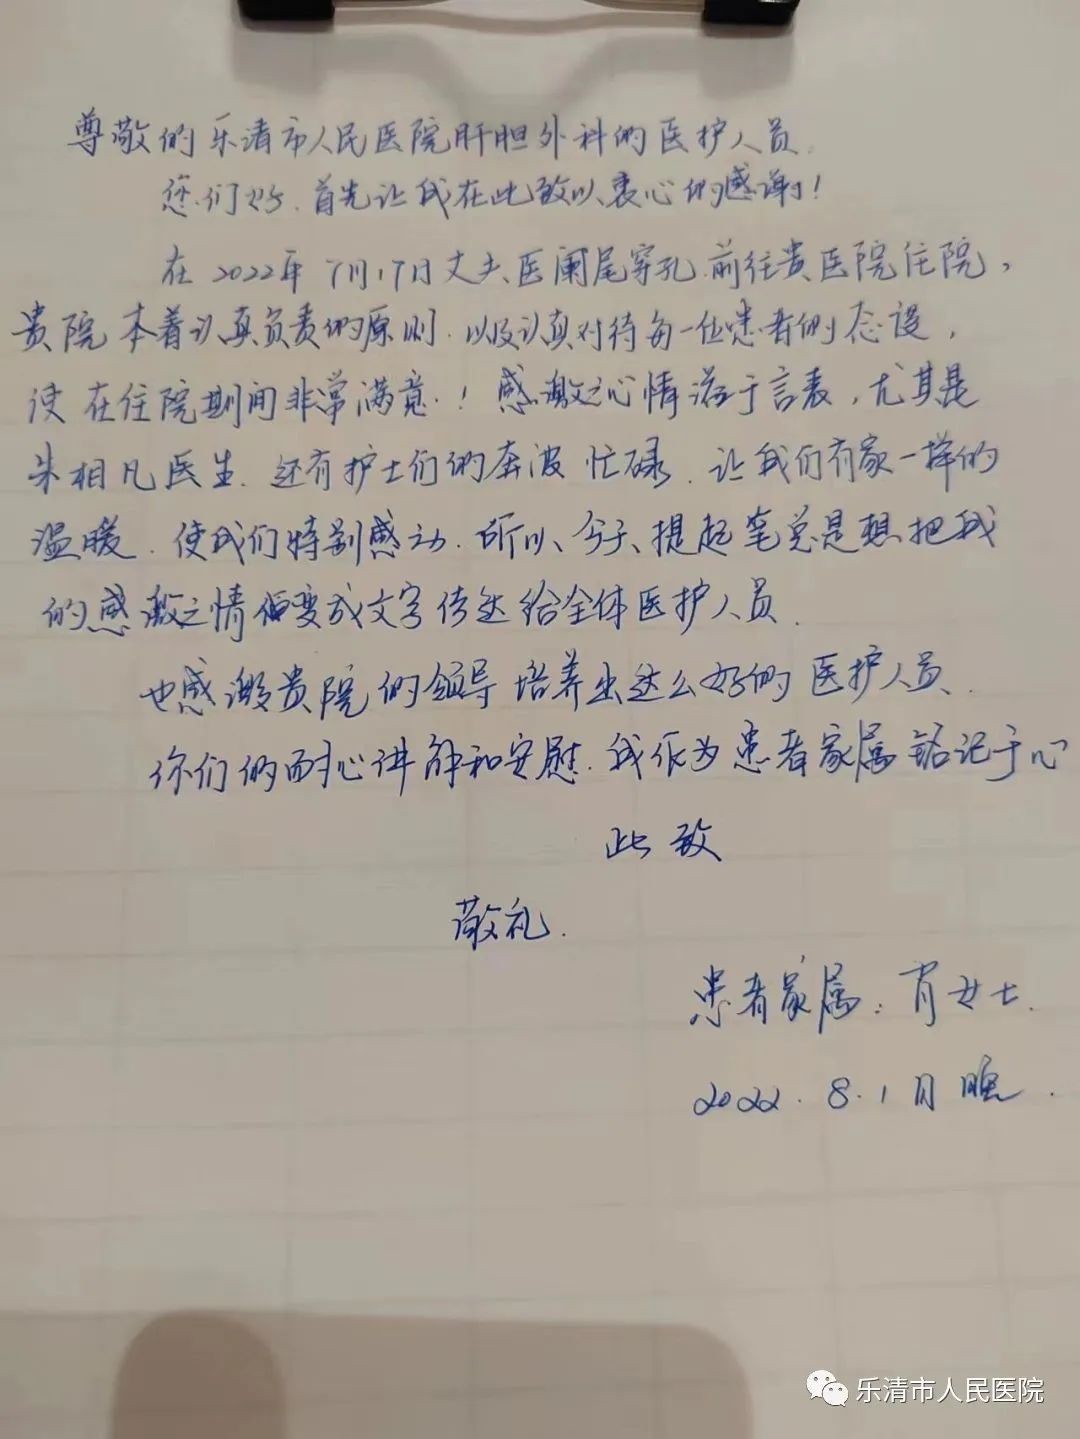 尊敬的乐清市人民医院肝胆外科的医护人员.
您们好.首先让我在此致以衷心的感谢!
在2022年7月17日丈夫医阑尾穿孔.前往贵医院住院,
贵院本着认真负责的原则.以及认真对待每一位患者的态设,
使在住院期间非常满意.!感激之心情溢于言表,尤其是
朱相凡医生.还有护士们的奔波忙碌.让我们有家一样的
温暖.使我们特别感动.所以、今天、提起笔总是想把我
的感激之情变成文字传达给全体医护人员.
也感激贵院的领导培养出这么好的医护人员.
你们的耐心讲解和安慰.我作为患者家属铭记于心
此致
敬礼.
患者家属:肖女士.
2022.8.1日晚.
乐清市人民医院